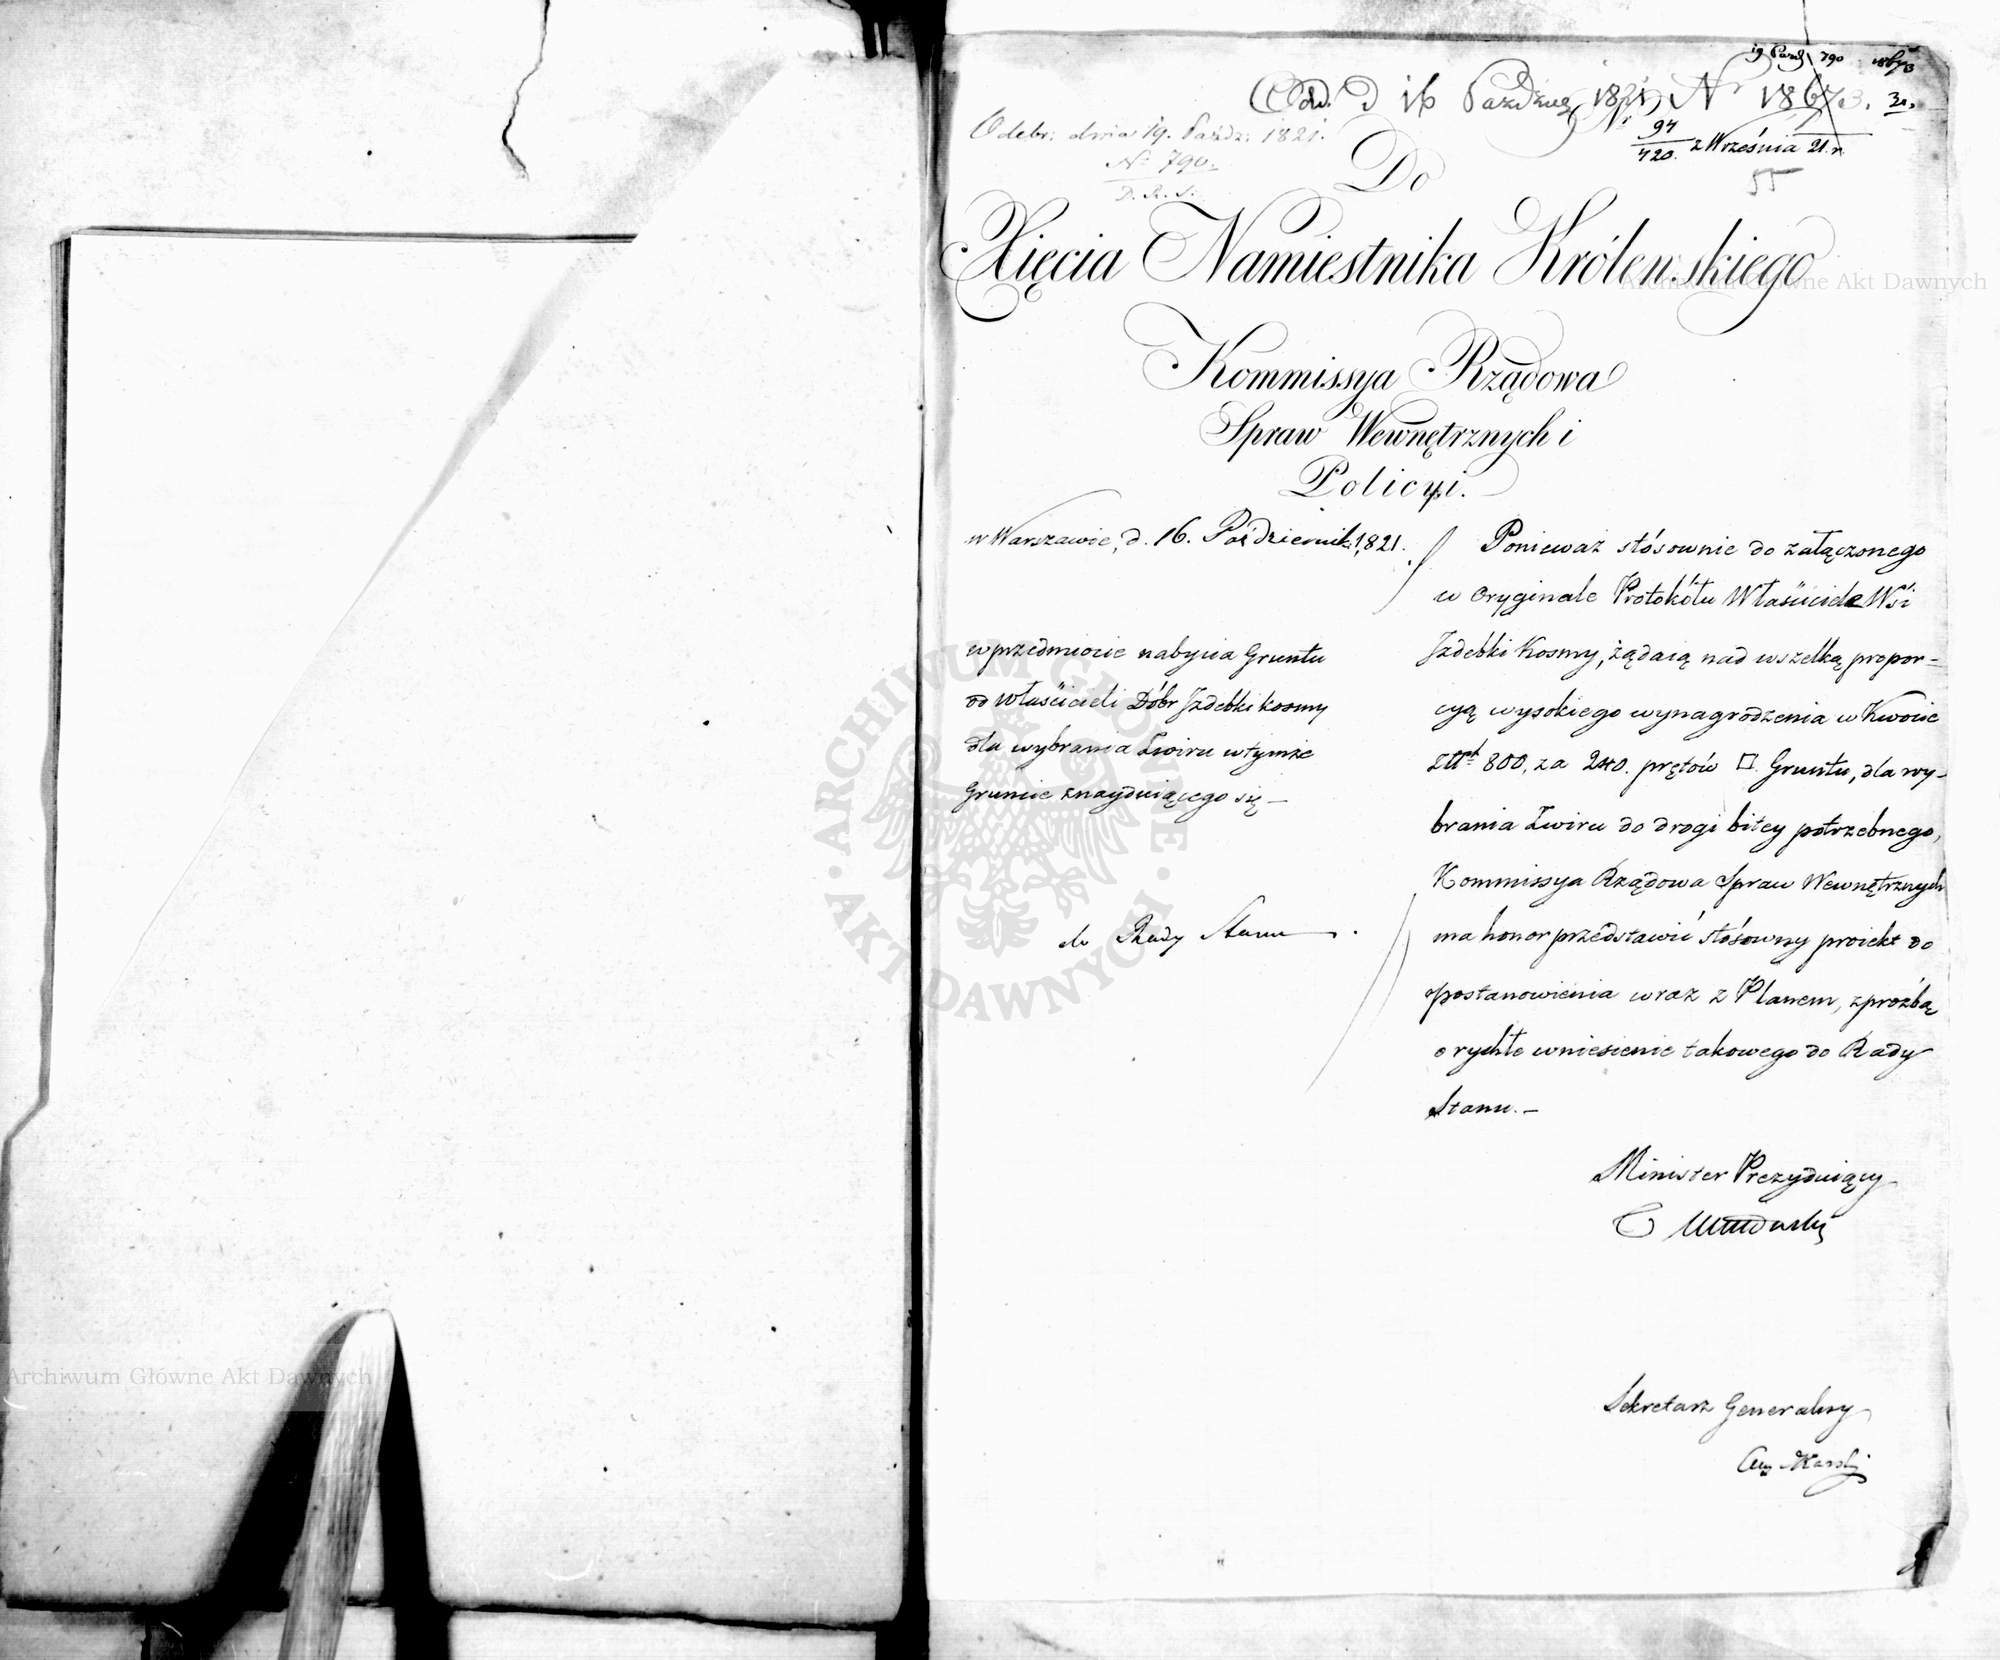 19 Paźd 790
Odw. D 16 Paźdz 1821 N 18673. 31.
Odebr: dnia 19. Paźdz: 1821.
N° 790.
D. R. S.
Nr 94/420. z Września 21. r.
55
Do
Xięcia Namiestnika Królewskiego
Kommissya Rządowa
Spraw Wewnętrznych i
Policyi.
w Warszawie, d. 16. Październik: 1821.
w przedmiocie nabycia Gruntu
od Właścicieli Dóbr Izdebki kosmy
dla wybrania Żwiru w tymże
Gruncie znayduiącego się —
do Rady Stanu
Ponieważ stósownie do załączonego
w Oryginale Protokółu Właściciele Wsi
Izdebki Kosmy, żądaią nad wszelką propor=
cyą wysokiego wynagrodzenia w Kwocie
Złt 800, za 240. prętów □ Gruntu, dla wy-
brania Żwiru do drogi bitey potrzebnego,
Kommissya Rządowa Spraw Wewnętrznych
ma honor przedstawić stósowny proiekt do
postanowienia wraz z Planem, z prożbą
o rychłe wniesienie takowego do Rady
Stanu. —
Minister Prezyduiący
Sekretarz Generalny
Archiwum Główne Akt Dawnych
Archiwum Główne Akt Dawnych
· ARCHIWUM GŁÓWNE · AKT DAWNYCH